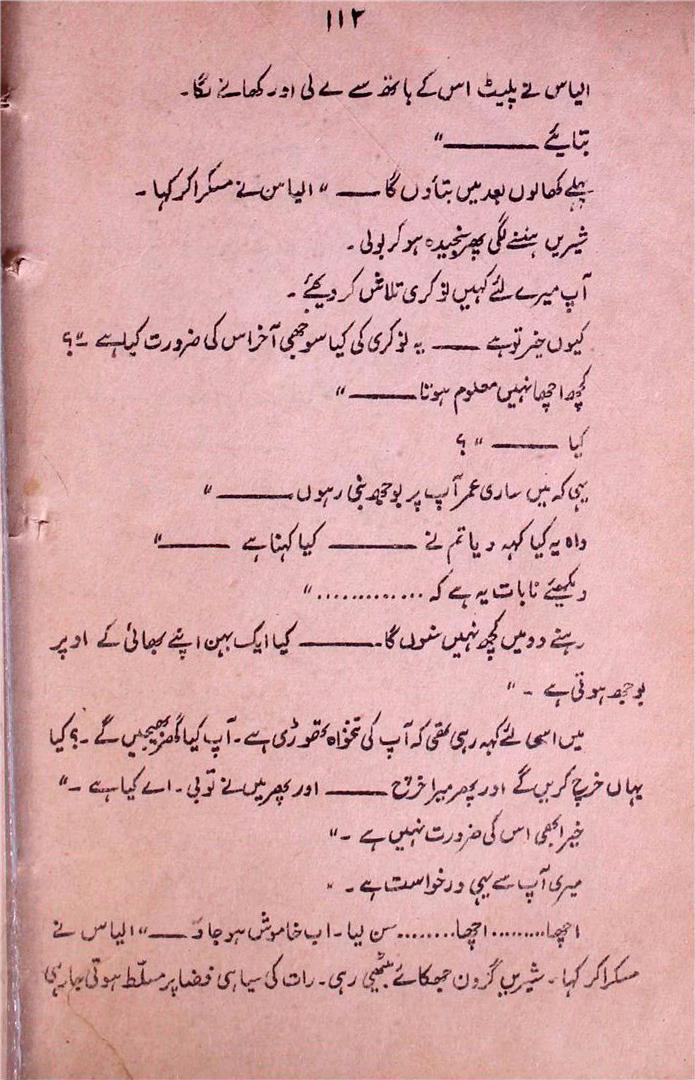 ۱۱۲
الیاس نے پلیٹ اس کے ہاتھ سے لے لی اور کھانے لگا۔
بتایئے ــــــــ"
پہلے کھالوں بعد میں بتاؤں گا ــــ" الیاس نے مسکرا کر کہا۔
شیریں ہنسنے لگی پھر سنجیدہ ہو کر بولی۔
آپ میرے لئے کہیں نوکری تلاش کر دیجئے۔
کیوں خیر تو ہے ــــ یہ نوکری کی کیا سوجھی آخر اس کی ضرورت کیا ہے ــ"؟
کچھ اچھا نہیں معلوم ہوتا ــــــ"
کیا ــــــ"؟
یہی کہ میں ساری عمر آپ پر بوجھ بنی رہوں ــــــ"
واہ یہ کیا کہہ دیا تم نے ــــــــ کیا کہنا ہے ــــــ"
دیکھئے نا بات یہ ہے کہ ............."
رہنے دو میں کچھ نہیں سنوں گا۔ــــــ کیا ایک بہن اپنے بھائی کے اوپر
بوجھ ہوتی ہے ۔"
میں اسی لئے کہہ رہی تھی کہ آپ کی تنخواہ تھوڑی ہے۔ آپ کیا گھر بھیجیں گے ۔؟ کیا
یہاں خرچ کریں گے اور پھر میرا خرچ ــــــ اور پھر میں نے تو بی۔ اے کیا ہے ۔"
خیر ابھی اس کی ضرورت نہیں ہے ۔"
میری آپ سے یہی درخواست ہے ۔ "
اچھا......... اچھا........ سن لیا۔ اب خاموش ہو جاؤ ــــ" الیاس نے
مسکرا کر کہا۔ شیریں گردن جھکائے بیٹھی رہی۔ رات کی سیاہی فضا پر مسلّط ہوتی جا رہی